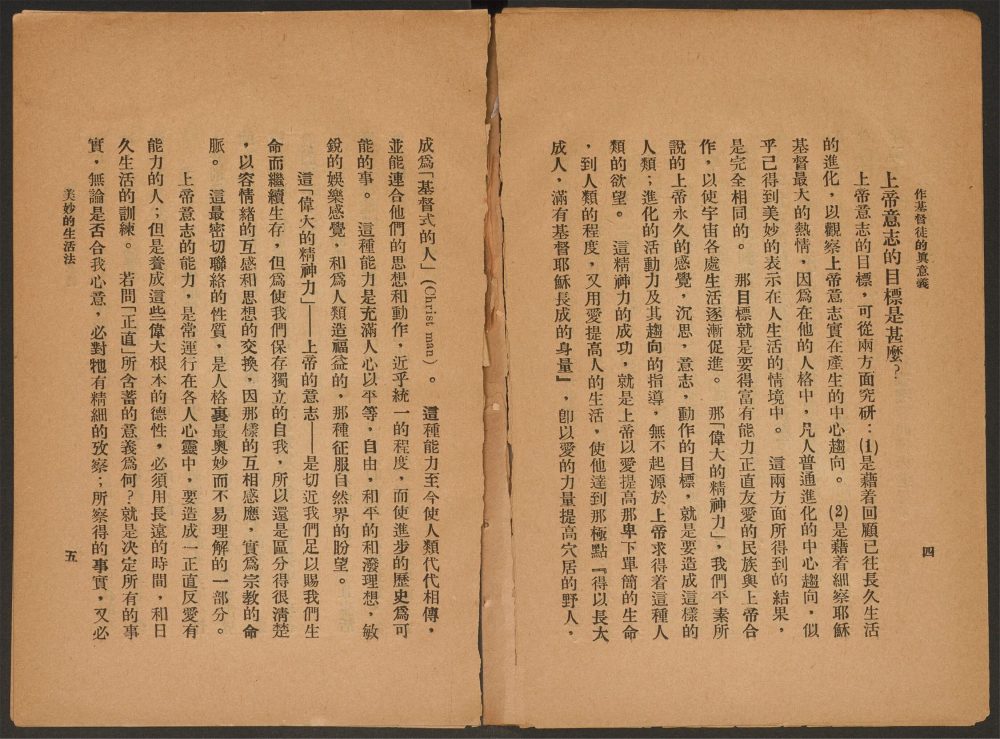 作基督徒的眞意義
四
上帝意志的目標是甚麼?
上帝意志的目標,可從兩方面究研:(1)是藉着回顧已往長久生活
的進化,以觀察上帝意志實在產生的中心趨向。 (2)是藉着細察耶穌
基督最大的熱情,因爲在他的人格中,凡人普通進化的中心趨向,似
乎己得到美妙的表示在人生活的情境中。 這兩方面所得到的結果,
是完全相同的。 那目標就是要得富有能力正直友愛的民族與上帝合
作,以使宇宙各處生活逐漸促進。 那「偉大的精神力」,我們平素所
說的上帝永久的感覺,沉思,意志,動作的目標,就是要造成這樣的
人類;進化的活動力及其趨向的指導,無不起源於上帝求得着這種人
類的欲望。 這精神力的成功,就是上帝以愛提高那卑下單簡的生命
,到人類的程度,又用愛提高人的生活,使他達到那極點『得以長大
成人,滿有基督耶穌長成的身量』,卽以愛的力量提高穴居的野人,
成爲「基督式的人」(Christ man)。 這種能力至今使人類代代相傳,
並能連合他們的思想和動作,近乎統一的程度,而使進步的歷史爲可
能的事。 這種能力是充滿人心以平等,自由,和平的和潑理想,敏
銳的娛樂感覺,和爲人類造福益的,那種征服自然界的盼望。
這「偉大的精神力」——上帝的意志——是切近我們足以賜我們生
命而繼續生存,但爲使我們保存獨立的自我,所以還是區分得很清楚
,以容情緒的互感和思想的交換,因那樣的互相感應,實爲宗教的命
脈。 這最密切聯絡的性質,是人格裏最奧妙而不易理解的一部分。
上帝意志的能力,是常運行在各人心靈中,要造成一正直反愛有
能力的人;但是養成這些偉大根本的德性,必須用長遠的時間,和日
久生活的訓練。 若問「正直」所含蓄的意義爲何?就是決定所有的事
實,無論是否合我心意,必對牠有精細的攷察;所察得的事實,又必
美妙的生活法
五